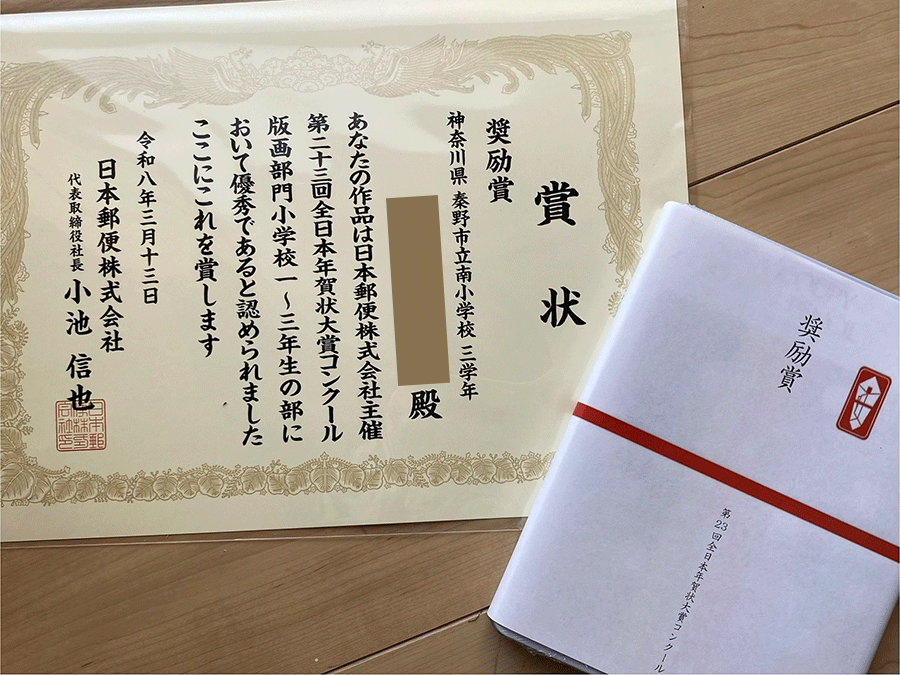 賞状
奨励賞
神奈川県 秦野市立南小学校 三学年
殿
あなたの作品は日本郵便株式会社主催
第二十三回全日本年賀状大賞コンクール
版画部門小学校一〜三年生の部に
おいて優秀であると認められました
ここにこれを賞します
令和八年三月十三日
日本郵便株式会社
代表取締役社長 小池 信也
奨励賞
第23回全日本年賀状大賞コンクール